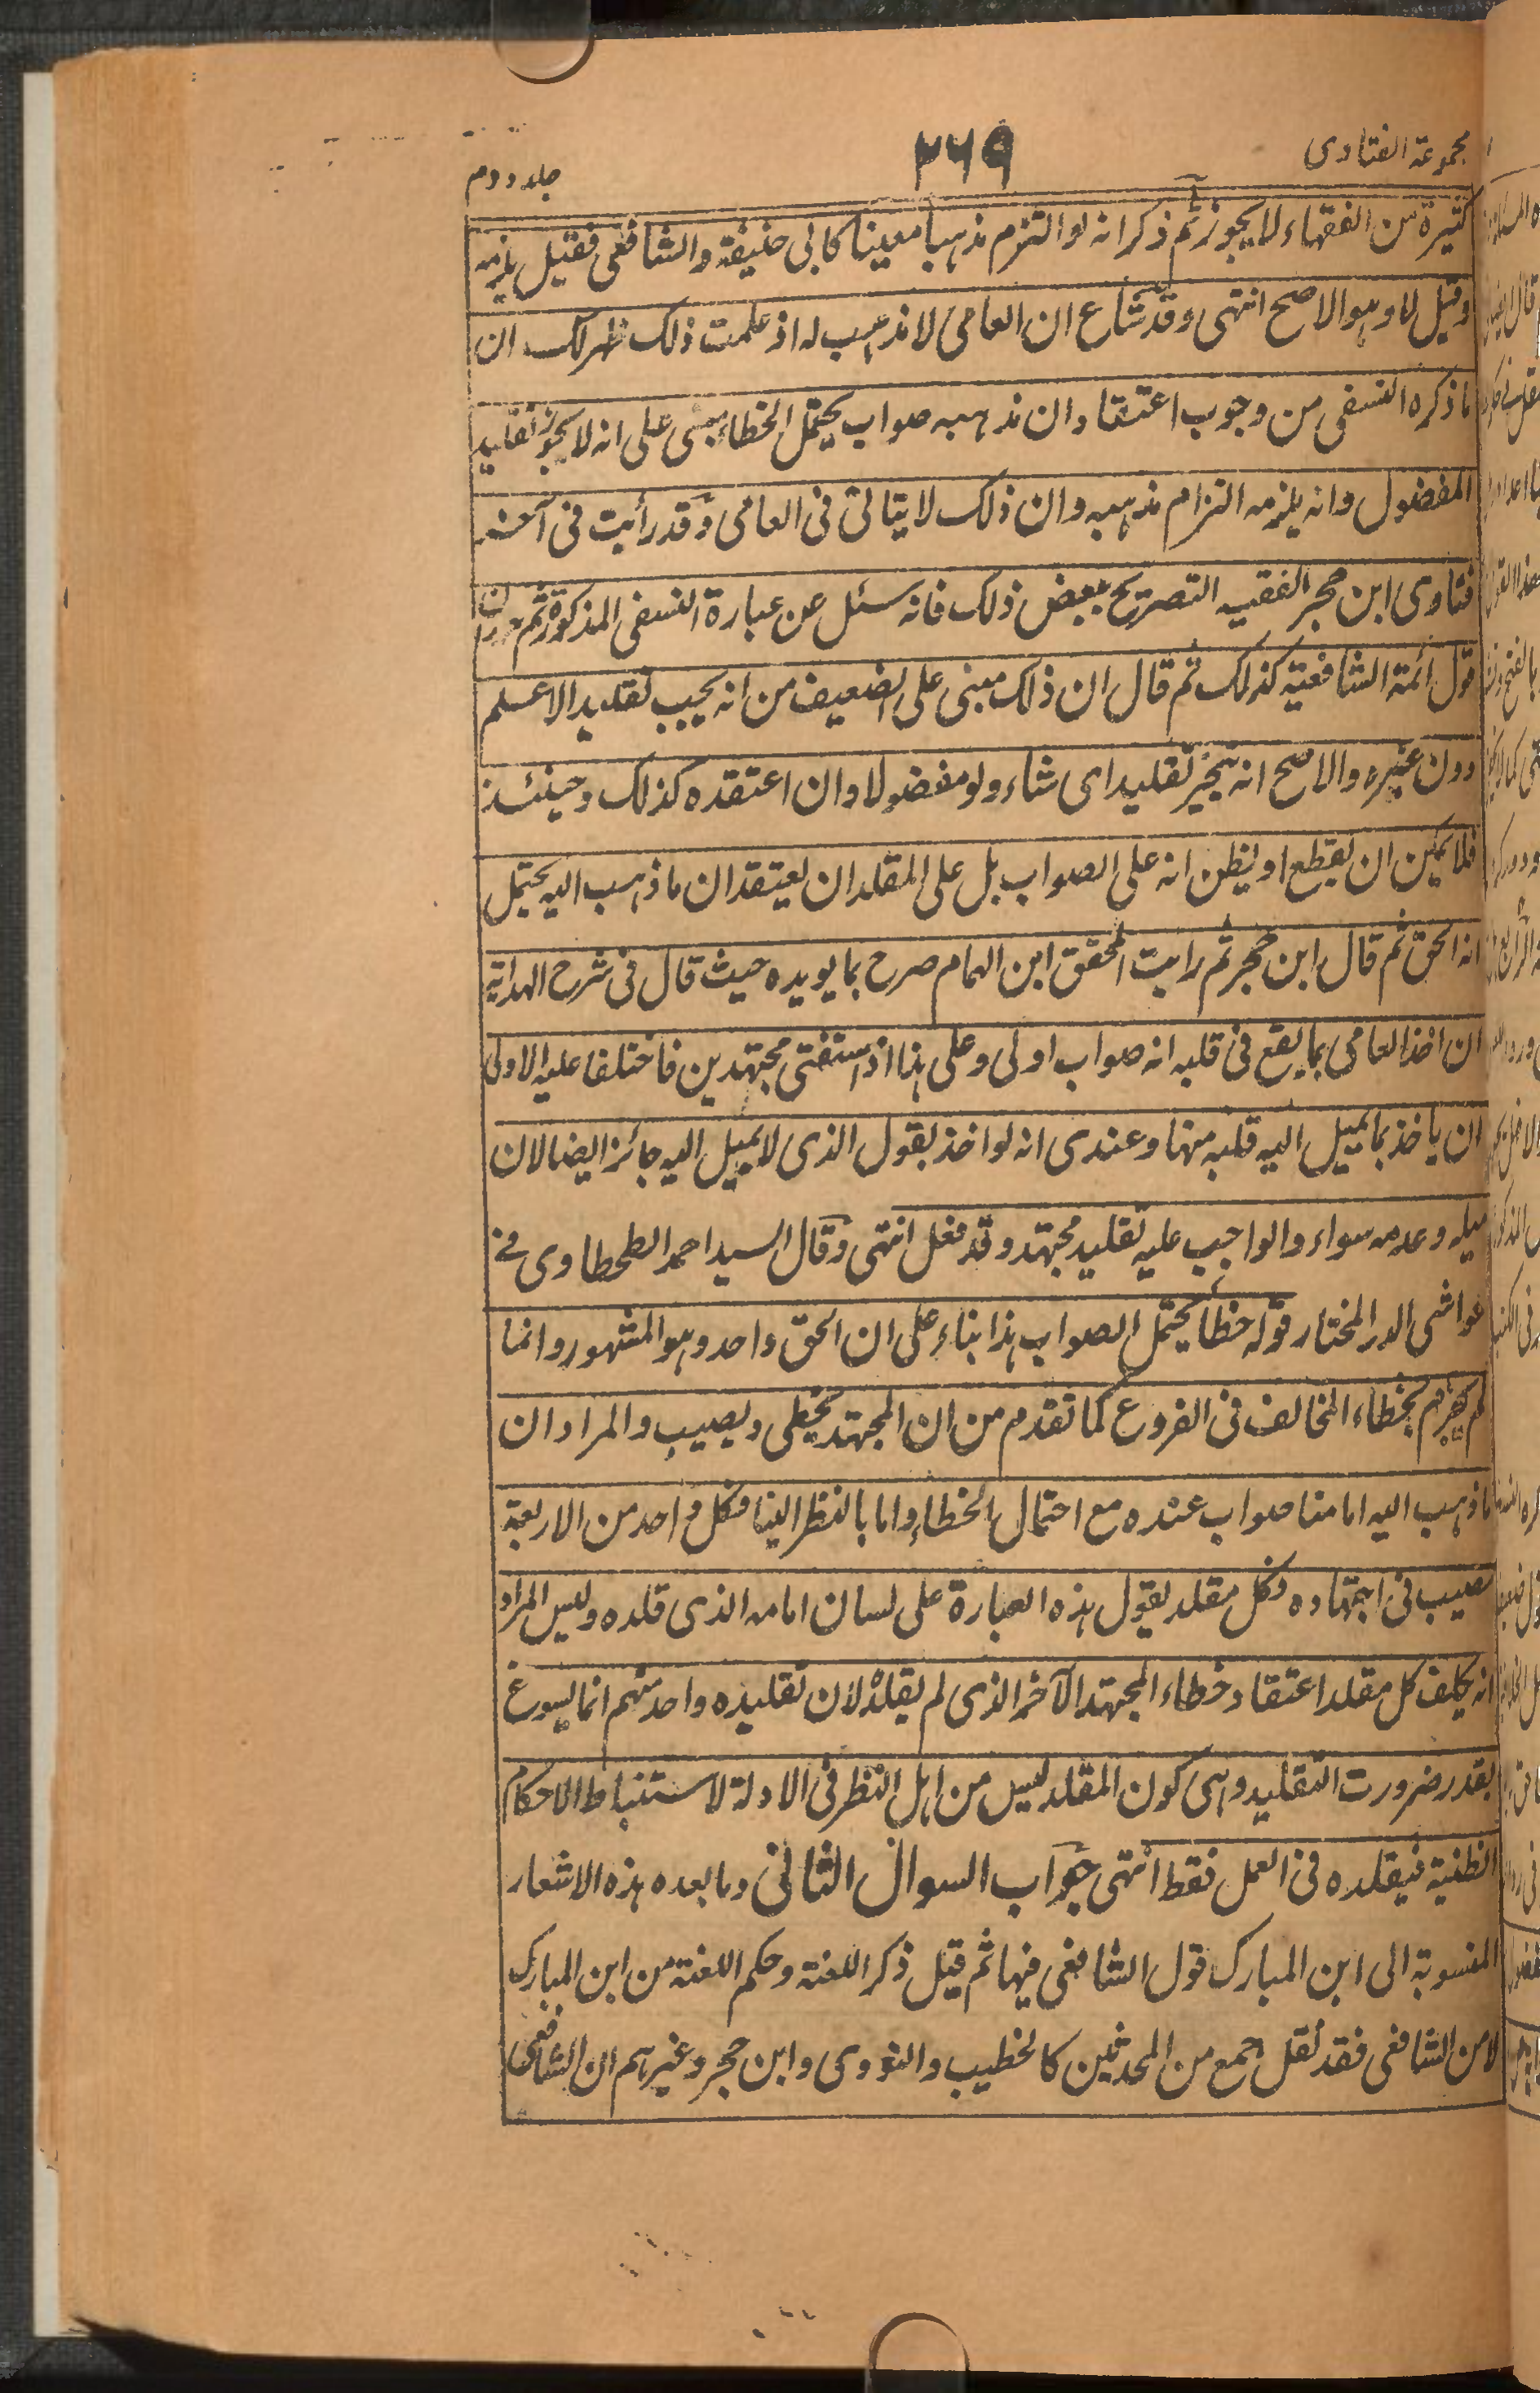 مجموعة الفتاوى
٢٦٩
جلد دوم
كثيرة من الفقهاء لا يجوز ثم ذكر انه لو التزم مذهبا معينا كابى حنيفة والشافعى فقيل يلزمه
وقيل لا وهو الاصح انتهى وقد شاع ان العامى لا مذهب له اذ علمت ذلك ظهر لك ان
ما ذكره النسفى من وجوب اعتقاد ان مذهبه صواب يحتمل الخطاء مبنى على انه لا يجوز تقليد
المفضول وانه يلزمه التزام مذهبه وان ذلك لا يتاتى فى العامى وقد رأيت فى آخر
فتاوى ابن حجر الفقيه التصريح ببعض ذلك فانه سئل عن عبارة النسفى المذكورة ثم حرر ان
قول ائمة الشافعية كذلك ثم قال ان ذلك مبنى على الضعيف من انه يجيب تقليد الاعلم
دون غيره والاصح انه يتخير تقليد اى شاء ولو مفضولا وان اعتقده كذلك وحينئذ
فلا يمكن ان يقطع او يظن انه على الصواب بل على المقلد ان يعتقد ان ما ذهب اليه يحتمل
انه الحق ثم قال ابن حجر ثم رايت المحقق ابن الهمام صرح بما يويده حيث قال فى شرح الهداية
ان اخذ العامى بما يقع فى قلبه انه صواب اولى وعلى هذا اذا استفتى مجتهدين فاختلفا عليه الاولى
ان ياخذ بما يميل اليه قلبه منهما وعندى انه لو اخذ بقول الذى لا يميل اليه جائز ايضا لان
ميله وعدمه سواء والواجب عليه تقليد مجتهد وقد فعل انتهى وقال السيد احمد الطحطاوى فى
حواشى الدر المختار قوله خطأ يحتمل الصواب هذا بناء على ان الحق واحد وهو المشهور وانما
لم يجزم بخطاء المخالف فى الفروع كما تقدم من ان المجتهد يخطى ويصيب والمراد ان
ما ذهب اليه امامنا صواب عنده مع احتمال الخطاء واما بالنظر الينا فكل واحد من الاربعة
مصيب فى اجتهاده وكل مقلد يقول هذه العبارة على لسان امامه الذى قلده وليس المراد
انه يكلف كل مقلد اعتقاد خطاء المجتهد الآخر الذى لم يقلده لان تقليده واحد منهم انما يسوغ
بقدر ضرورت التقليد وهى كون المقلد ليس من اهل النظر فى الادلة لاستنباط الاحكام
الظنية فيقلده فى العمل فقط انتهى جواب السوال الثانى وما بعده هذه الاشعار
المنسوبة الى ابن المبارك قول الشافعى فيها ثم قيل ذكر اللعنة وحكم اللعنة من ابن المبارك
لا من الشافعى فقد نقل جمع من المحدثين كالخطيب والنووى وابن حجر وغيرهم ان الشافعى